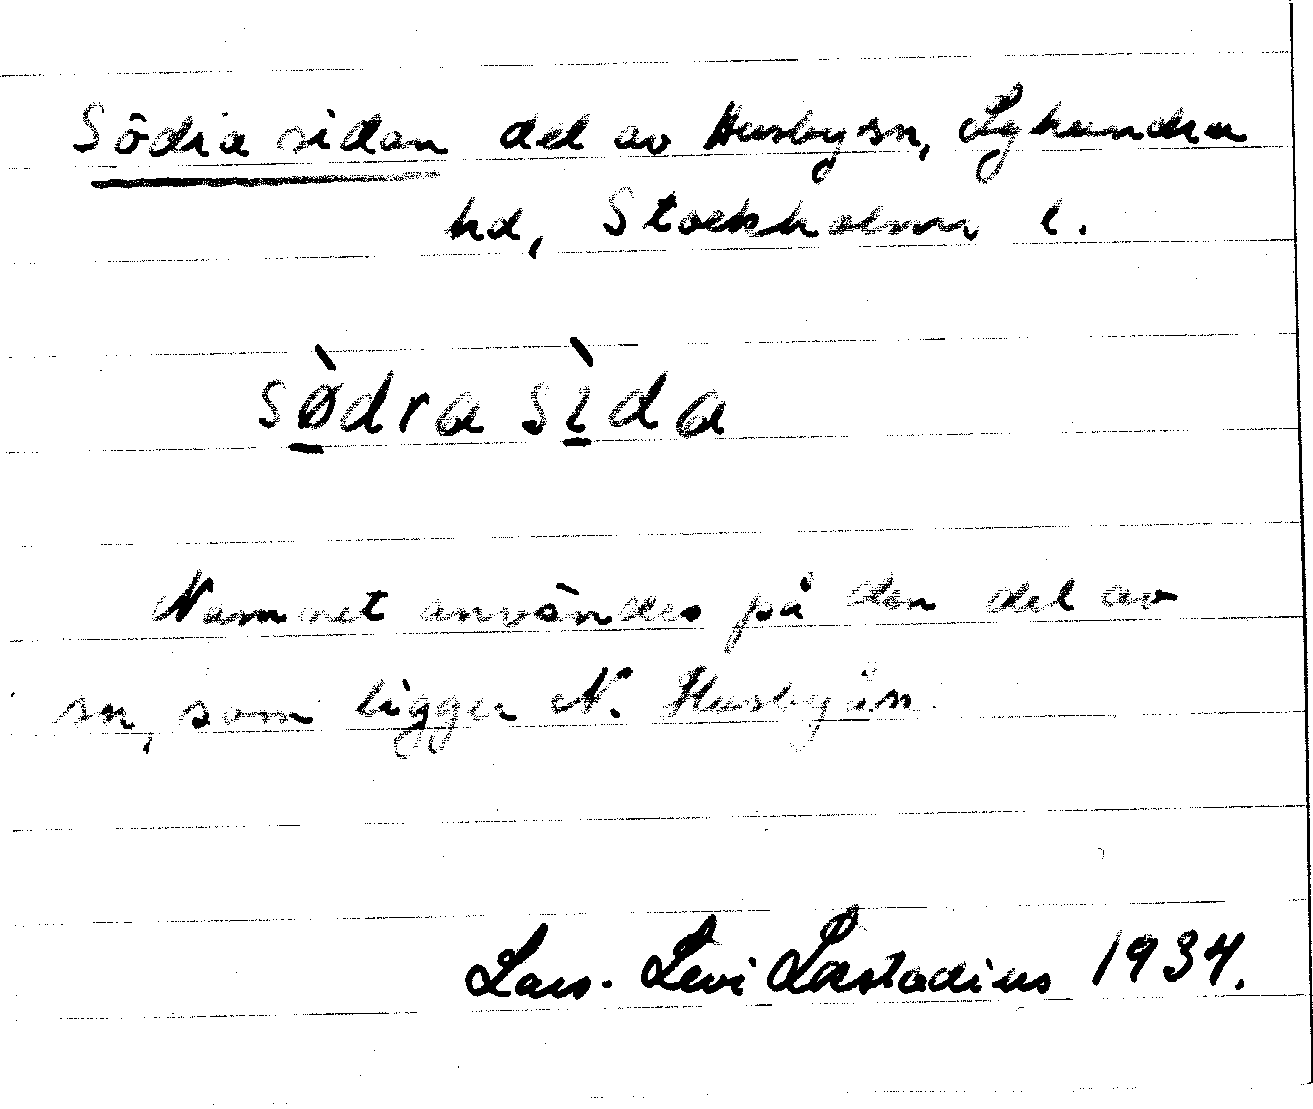 Södra sidan del av Husby sn, Lyhundra
hd, Stockholms l.
sø̀dra sìda
Namnet användes på den del av
sn, som ligger N. Husbyån.
Lars-Levi Læstadius 1934.